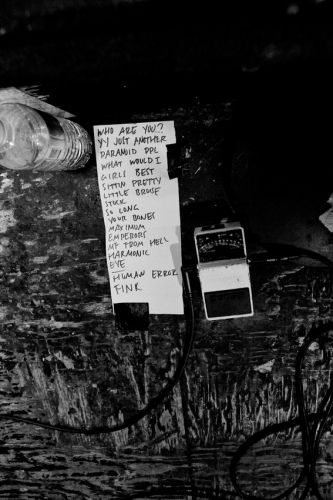 WHO ARE YOU?
YY JUST ANOTHER
PARANOID PPL
WHAT WOULD I
GIRLS BEST
SITTIN PRETTY
LITTLE BRUISE
STUCK
SO LONG
YOUR BONES
MAXIMUM
EMPERORS
MT FROM HELL
HARMONIC
EYE
HUMAN ERROR
FINK